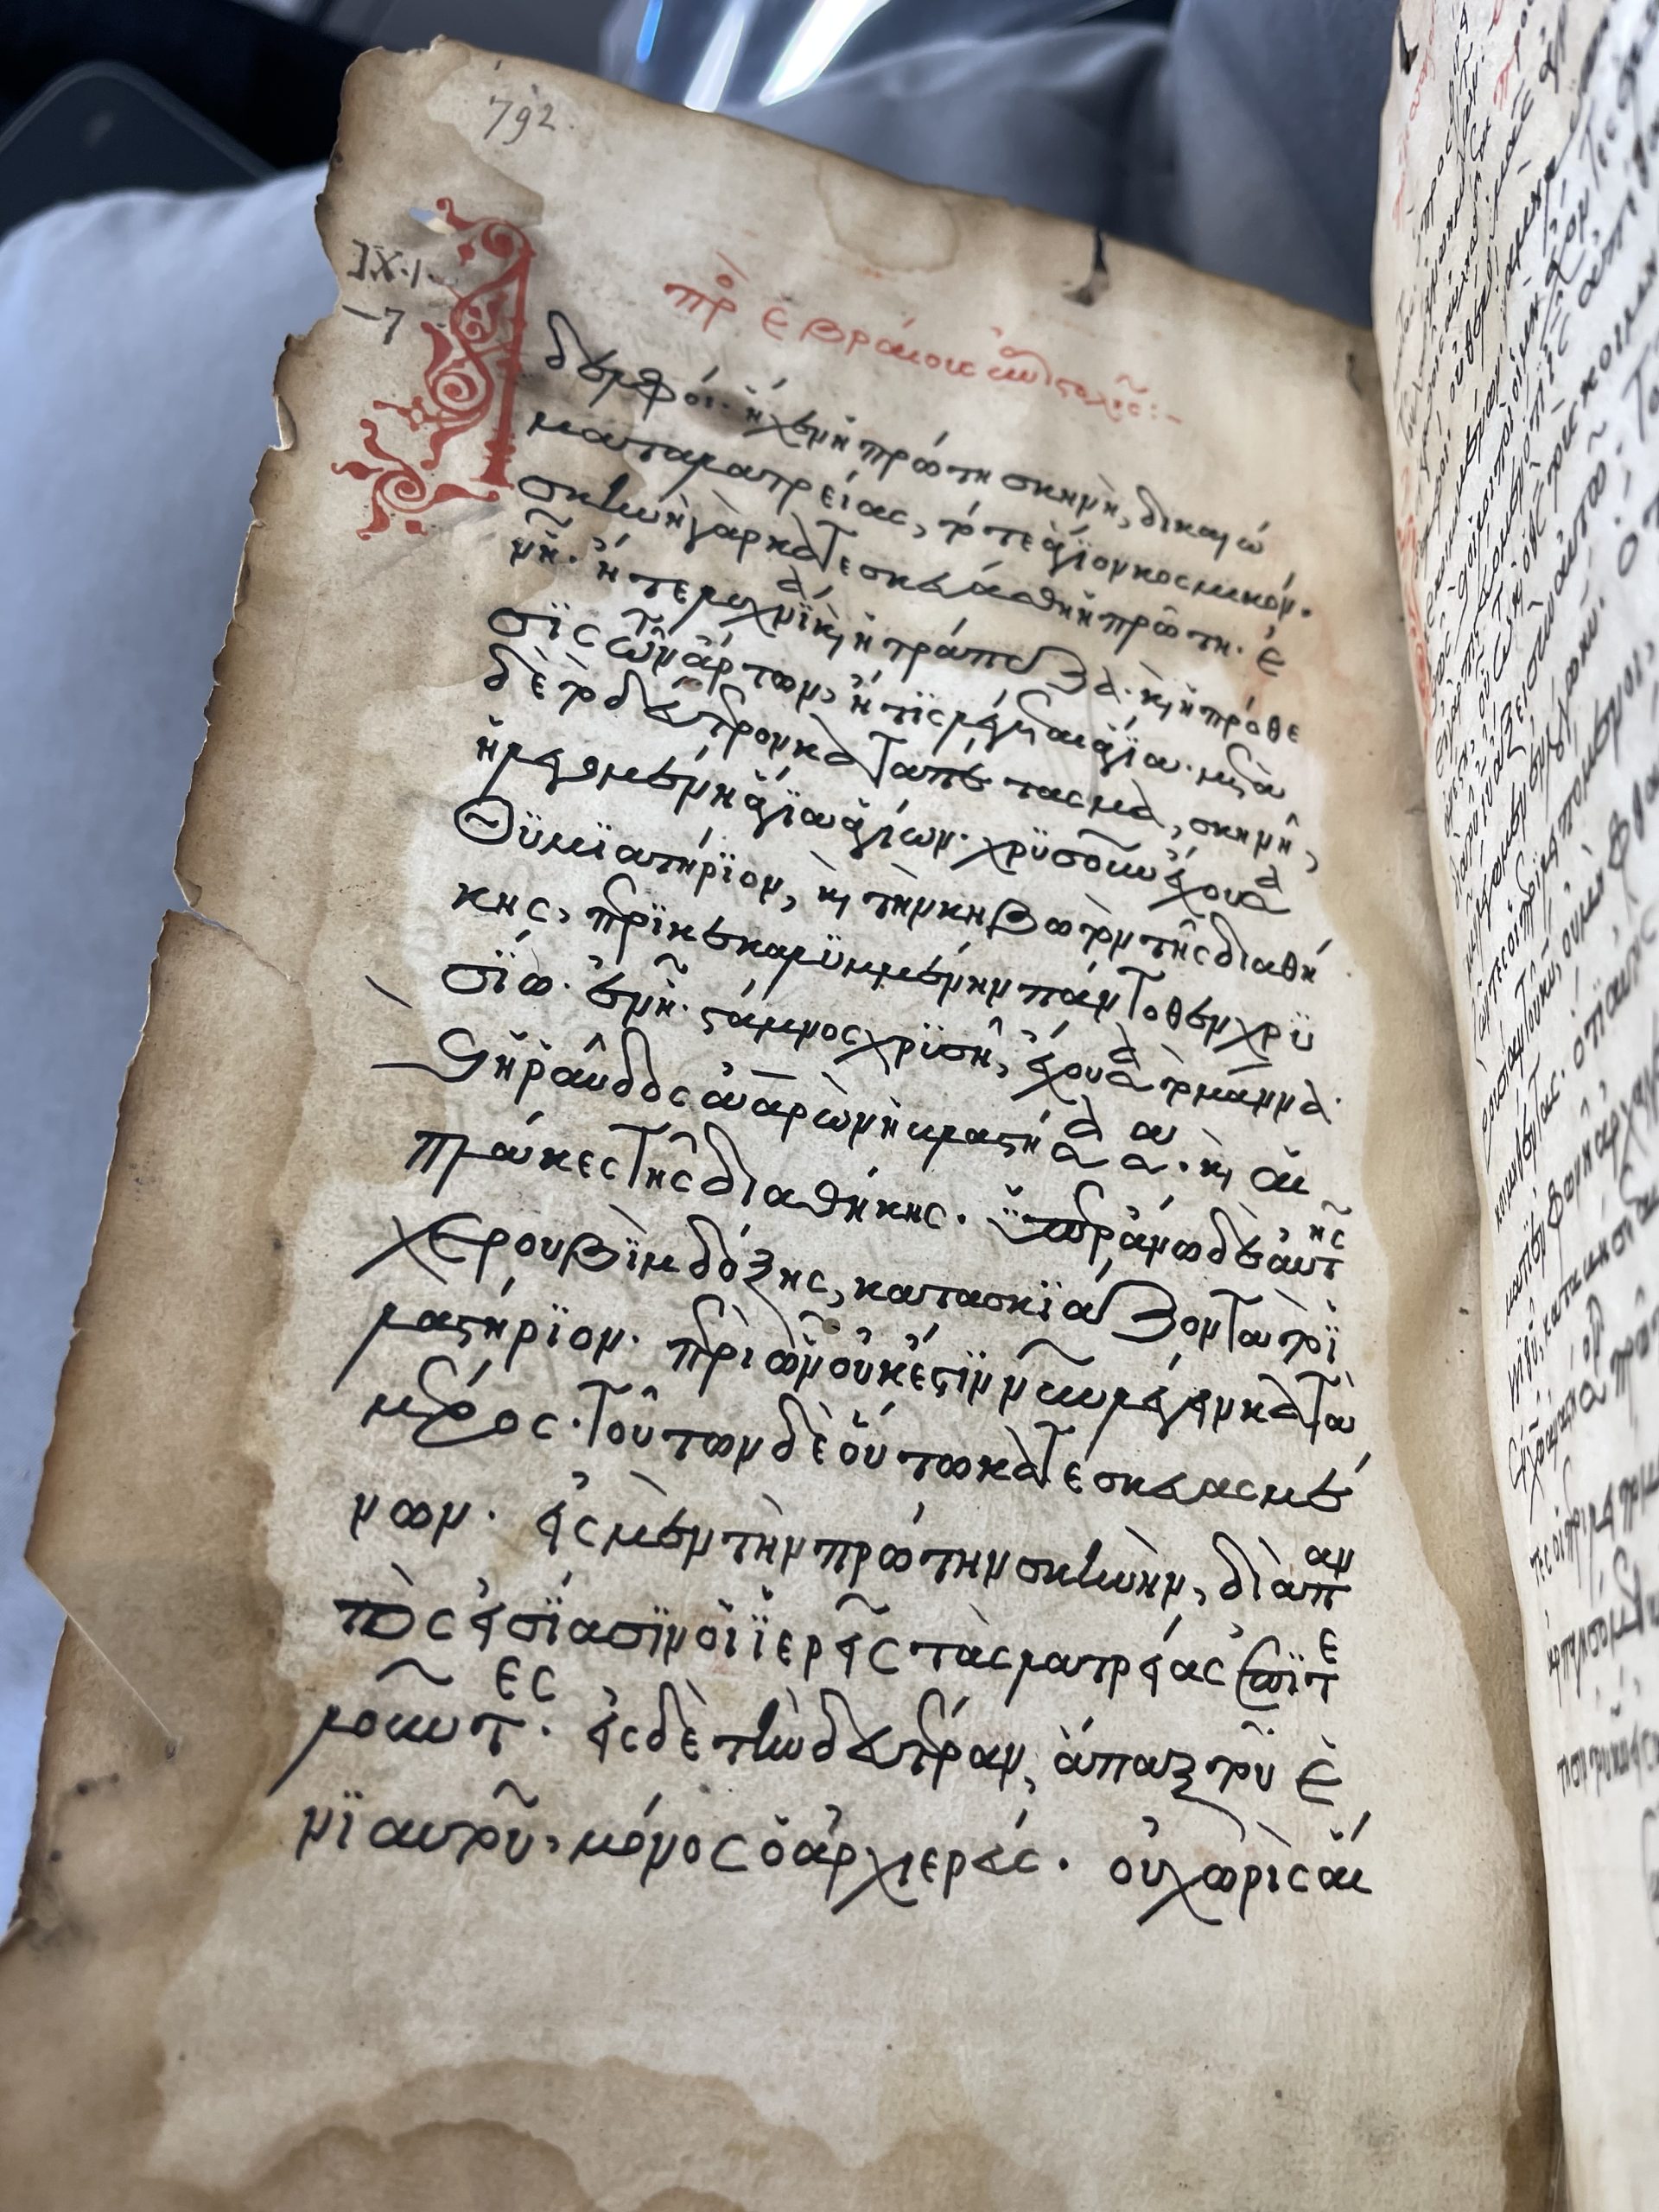 792.
IX.1.
-7
πρ Εβραίους ἐπιστολῆς:-
Ἀδελφοί· ἦχεν ἡ πρώτη σκηνὴ, δικαιώ
ματα λατρείας, τό τε ἅγϊον κοσμικόν·
σκηνὴ γὰρ κατεσκευάσθη ἡ πρώτη· ἐ
ν ἧ· ἥ τε λυχνϊκὴ ἡ τράπεζα· κ, ἡ πρόθε
σϊς τῶν ἄρτων, ἥτϊς λέγεται ἅγϊα· μετὰ
δὲ τὸ δεύτερον καταπέτασμα, σκηνὴ,
ἡ λεγομένη ἅγϊα ἁγίων· χρϋσοῦν ἔχουσα
Θϋμϊατήρϊον, κ, τὴν κηβωτὸν τῆς διαθή
κης, περϊκεκαλϋμμένην πάντοθεν χρϋ
σϊω· ἐν ἧ· στάμνος χρϋσῆ, ἔχουσα τὸ μάννα·
κ, ἡ ῥάβδος ἀαρὼν ἡ βλαστήσασα· κ, αἱ
πλάκες τῆς διαθήκης· ὑπεράνω δὲ αὐτῆς
χΕρουβϊμ δόξης, κατασκϊάζοντα τὸ ἱ
λαστήρϊον· περὶ ὧν οὐκ ἔστϊν νῦν λέγειν κατὰ
μέρος· τούτων δὲ οὕτω κατεσκευασμέ
νων· εἰς μὲν τὴν πρώτην σκηνὴν, διὰ παν
τὸς εἰσϊασϊν οἱ ἱερεῖς τὰς λατρείας ἐπϊτε
λοῦντες· εἰς δὲ τὴν δευτέραν, ἅπαξ τοῦ ἐ
νϊαυτοῦ, μόνος ὁ ἀρχιερεύς· οὐ χωρὶς αἵ